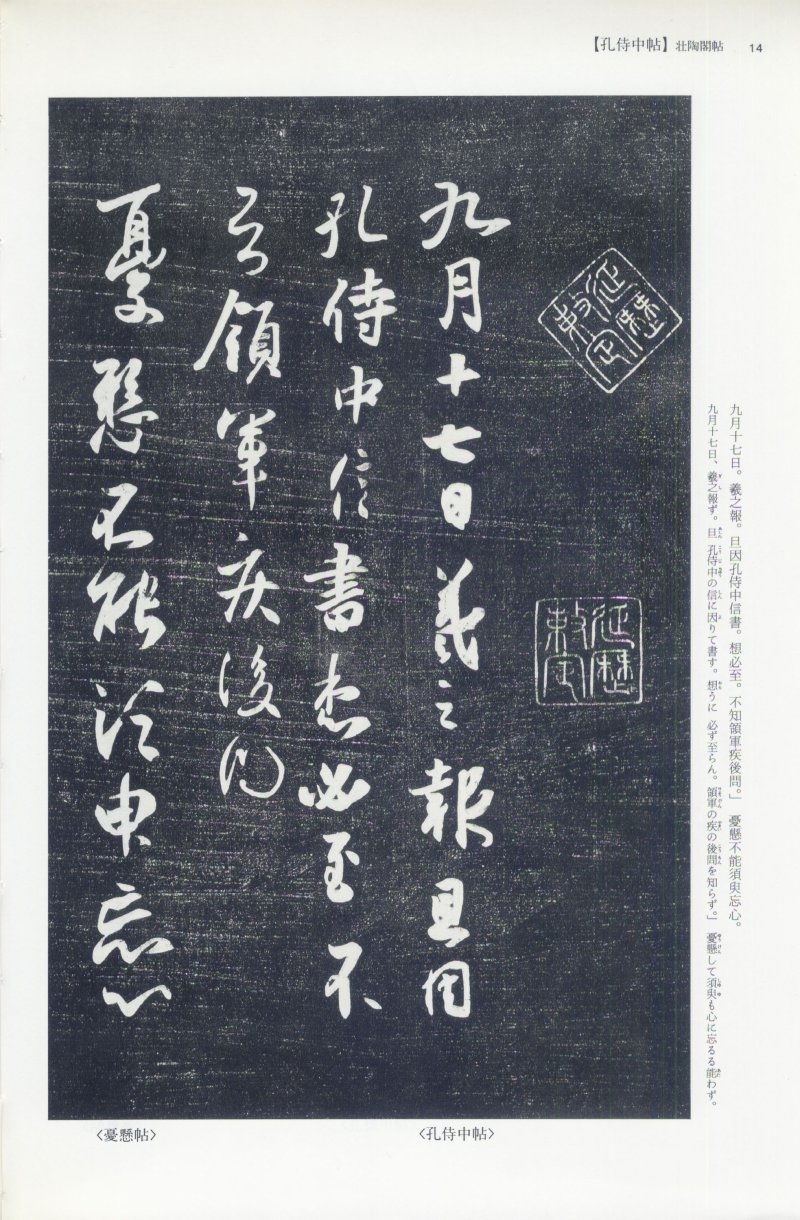 【孔侍中帖】 壮陶閣帖 14
九月十七日。羲之報。旦因孔侍中信書。想必至。不知領軍疾後問。」 憂懸不能須臾忘心。
九月十七日、羲之報ず。旦孔侍中の信に因りて書す。想うに 必ず至らん。領軍の疾の後問を知らず。」 憂懸して須臾も心に忘るる能わず。
九月十七日羲之報且因
孔侍中信書想必至不
知領軍疾後問
憂懸不能須臾忘心
〈孔侍中帖〉
〈憂懸帖〉